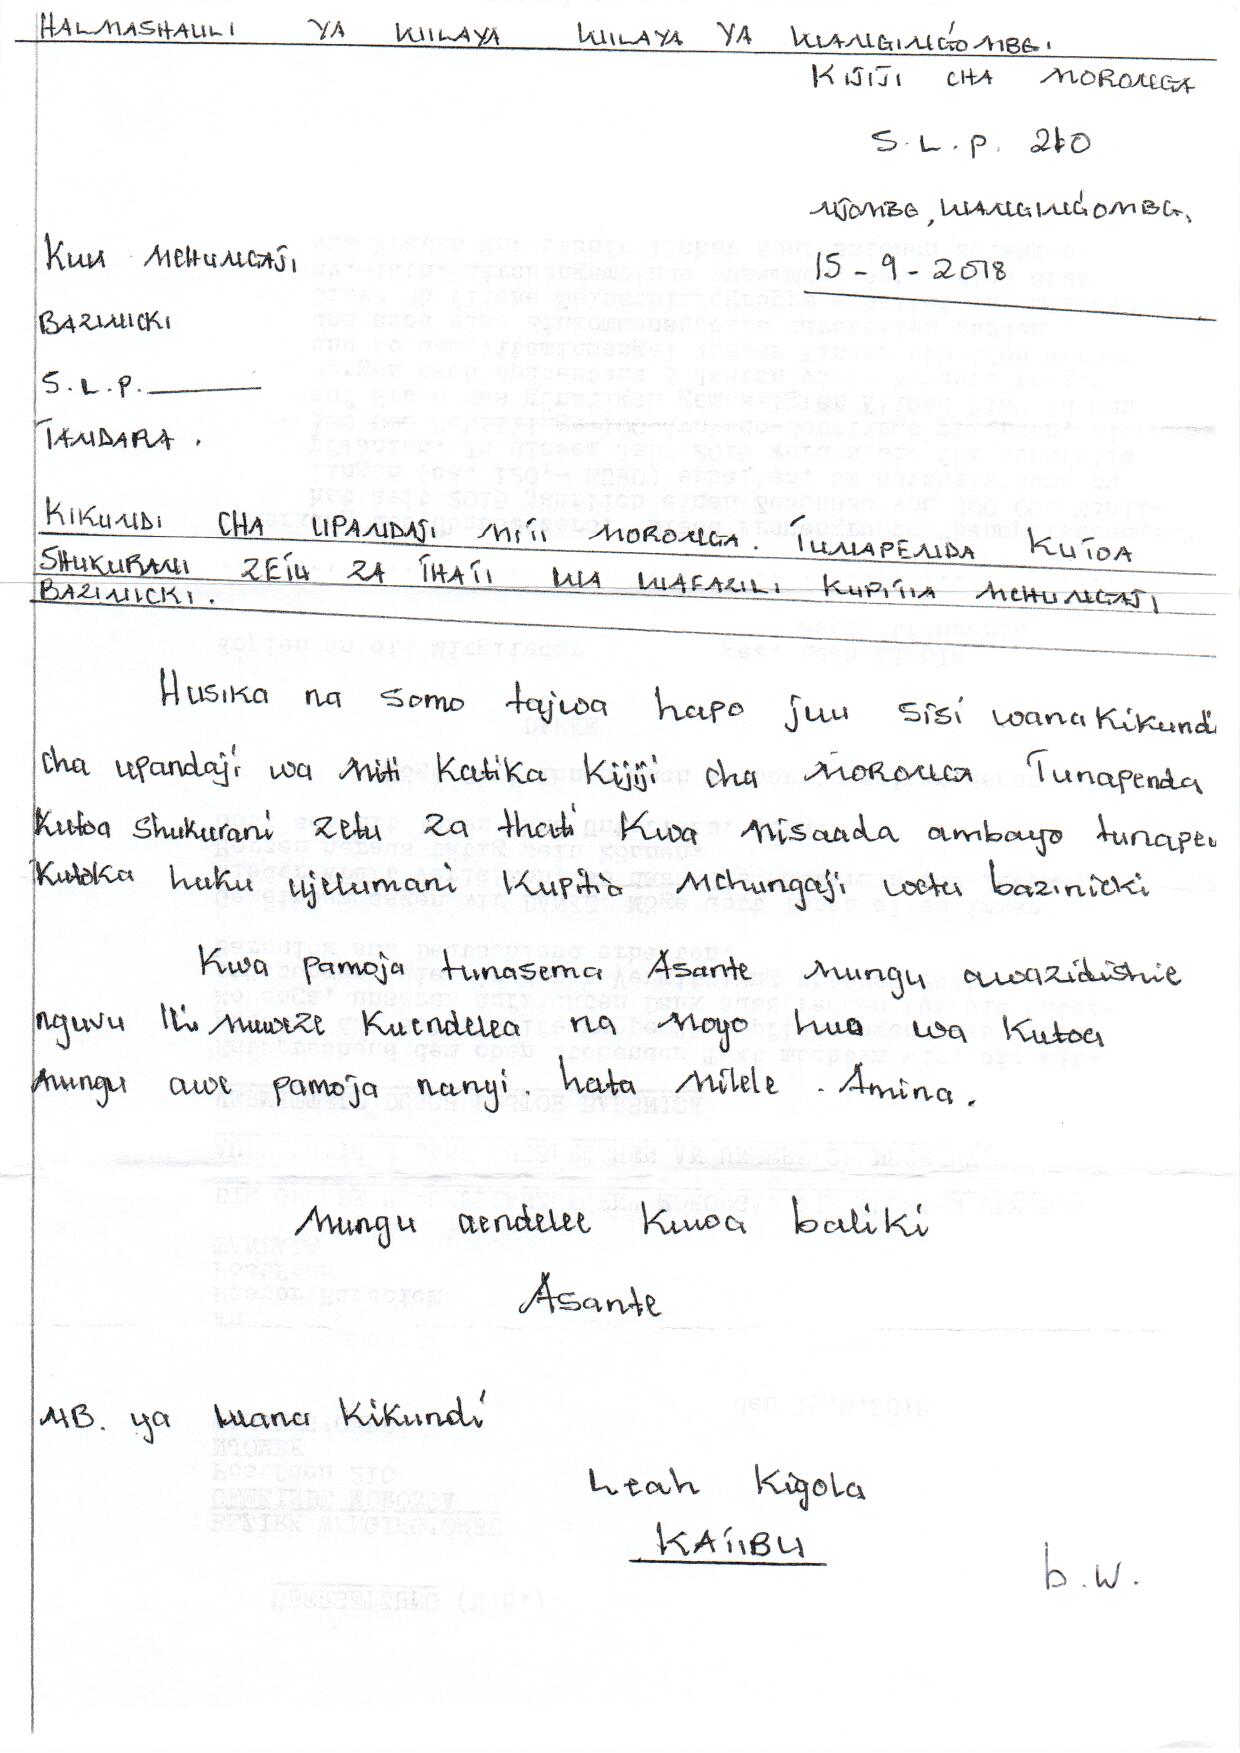 HALMASHAULI YA WILAYA WILAYA YA WANGING'OMBE.
KIJIJI CHA MORONGA
S.L.P. 210
NJOMBE, WANGING'OMBE,
15-9-2018
KWA MCHUNGAJI
BAZINICKI
S.L.P.
TANDARA.
KIKUNDI CHA UPANDAJI MITI MORONGA. TUNAPENDA KUTOA
SHUKURANI ZETU ZA THATI WA WAFAZILI KUPITIA MCHUNGAJI
BAZINICKI.
Husika na somo tajwa hapo juu sisi wana Kikundi
cha upandaji wa Miti Katika Kijiji cha MORONGA Tunapenda
Kutoa Shukurani Zetu Za thati Kwa Misaada ambayo tunape
Kutoka huku ujelumani Kupitia Mchungaji wetu bazinicki
Kwa pamoja tunasema Asante Mungu awazidishie
nguvu Ili Muweze Kuendelea na Moyo huo wa Kutoa
Mungu awe pamoja nanyi. hata Milele. Amina.
Mungu aendelee Kuwa baliki
Asante
NB. ya Wana Kikundi
Leah Kigola
KATIBU
b.w.